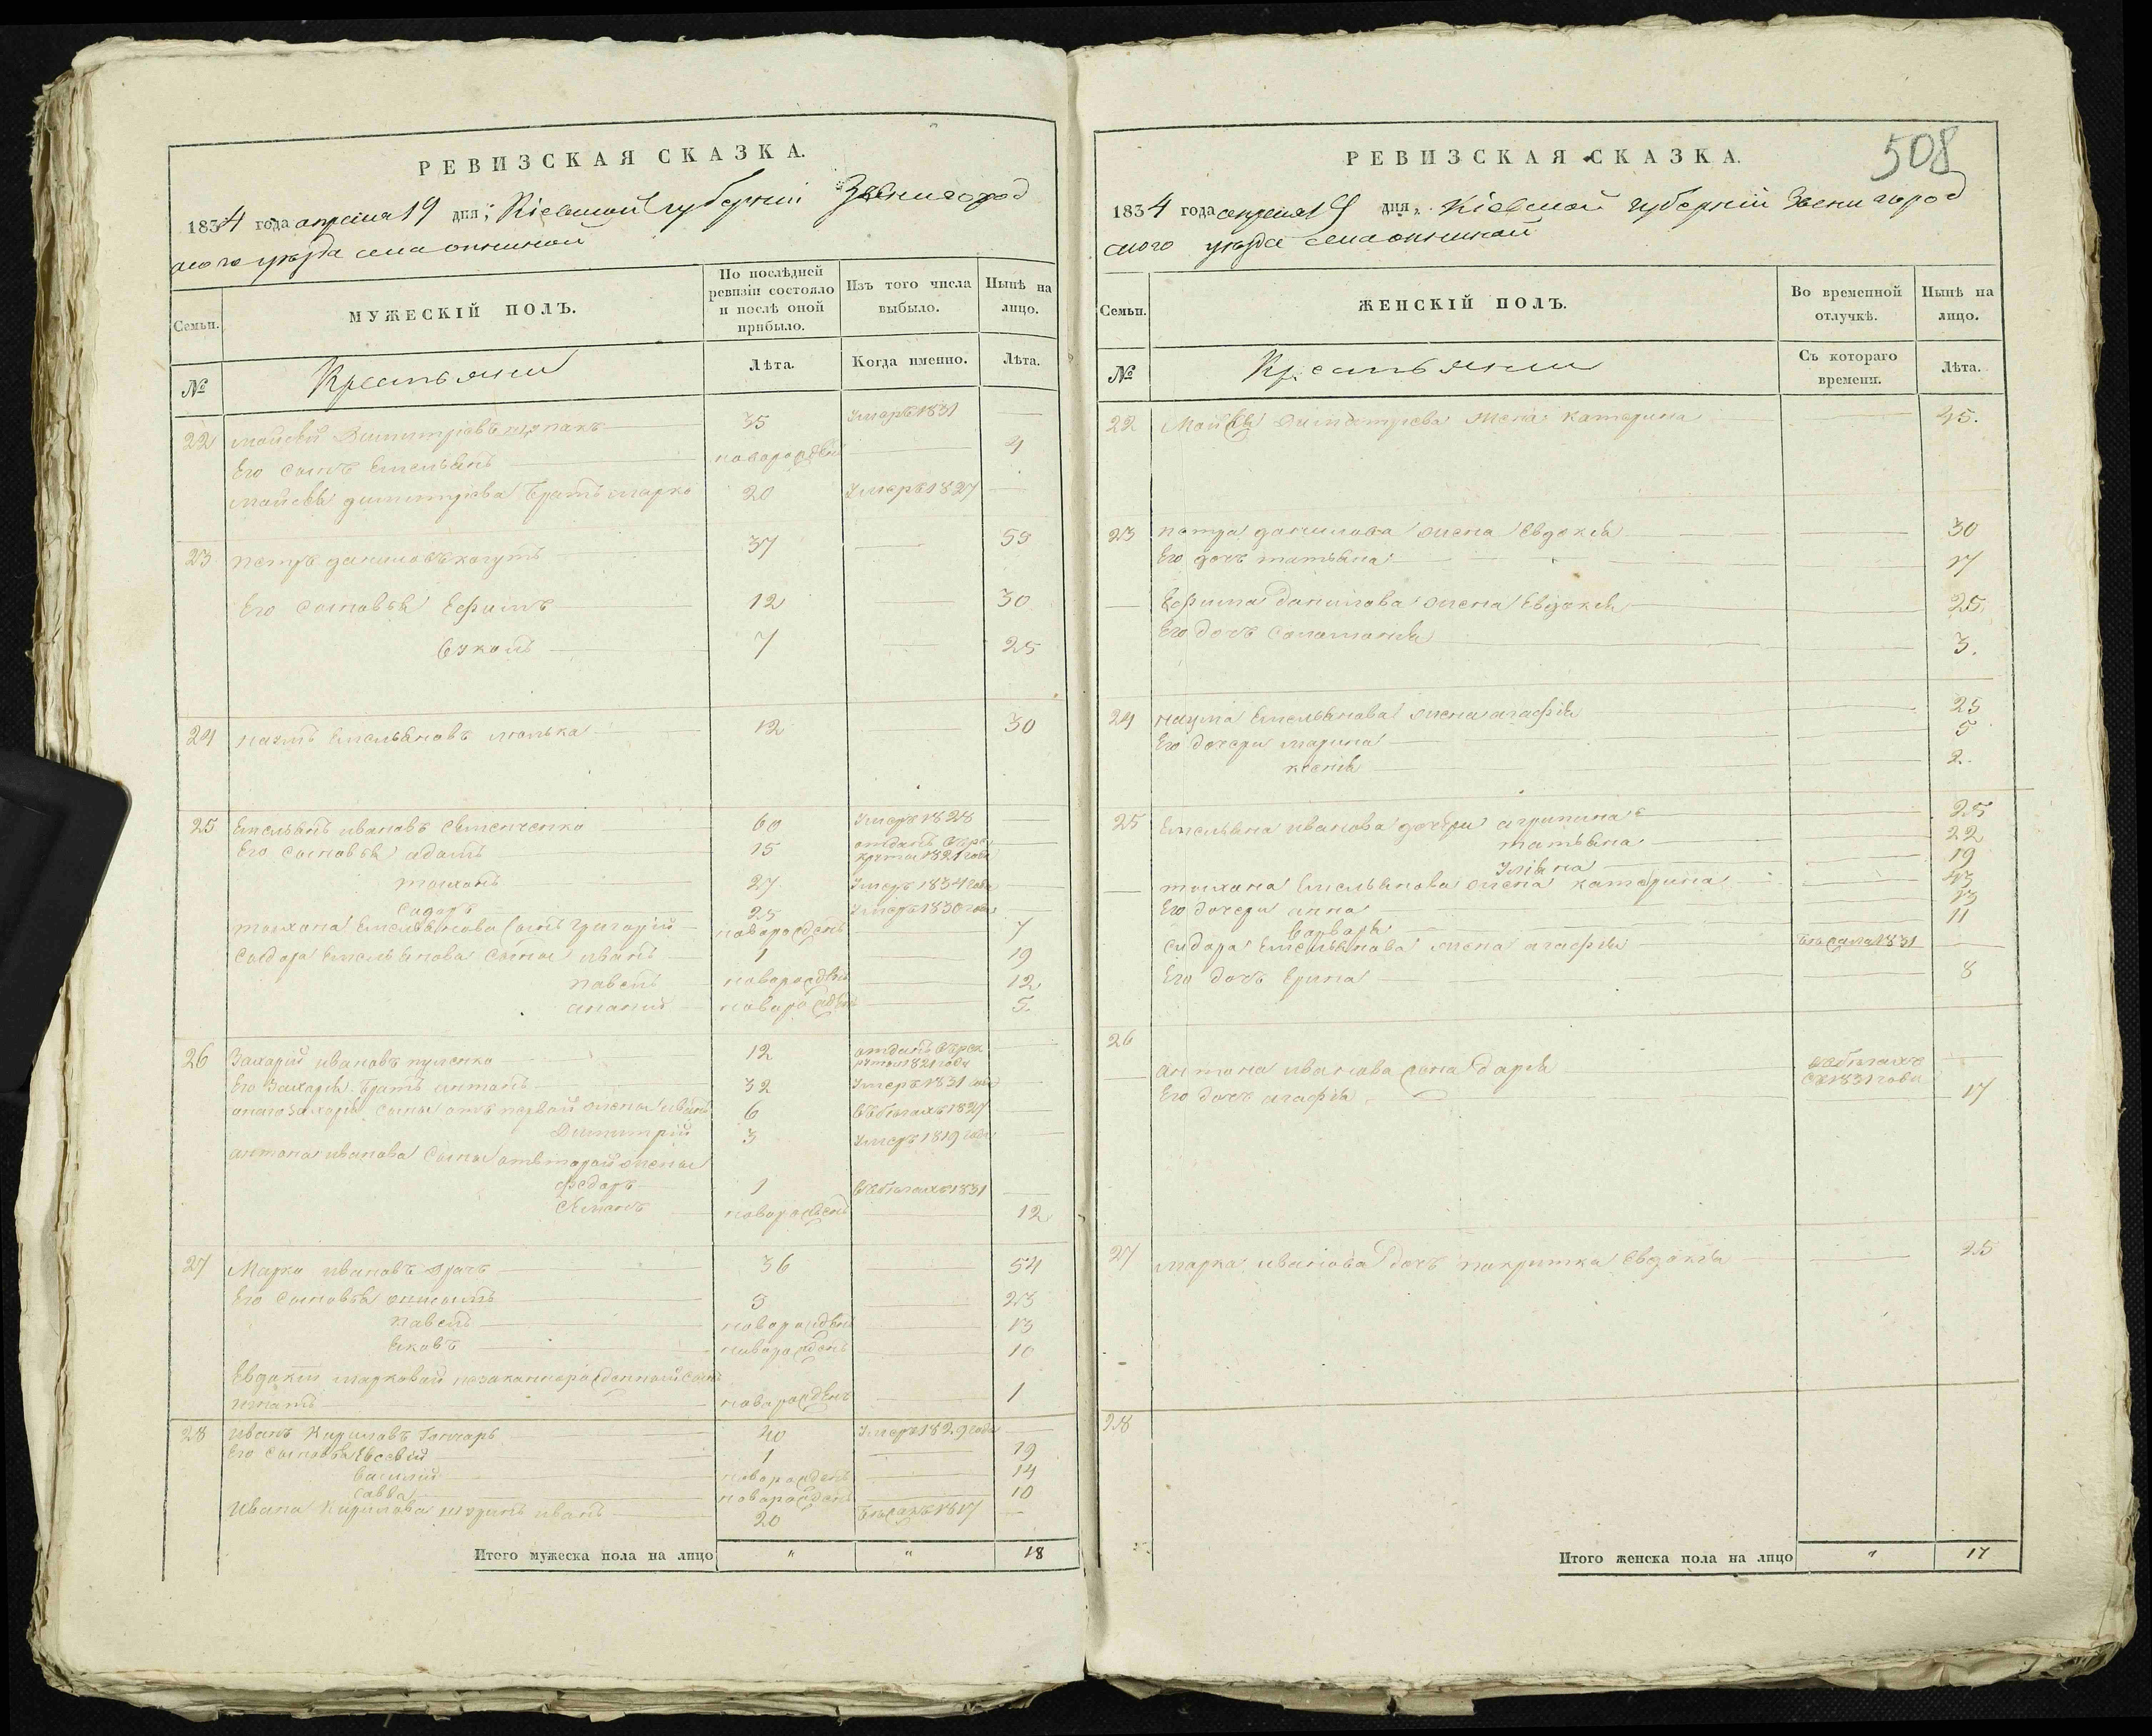 РЕВИЗСКАЯ СКАЗКА.
1834 года апреля 19 дня, Кіевской губерніи Звенигород
ского уезда села
Семьи.
МУЖЕСКІЙ ПОЛЪ.
По послѣдней ревизіи состояло и послѣ оной прибыло.
Изъ того числа выбыло.
Нынѣ на лицо.
№
Крестьяни
Лѣта.
Когда именно.
Лѣта.
22 Майсѣй Димитріевъ 35 Умеръ 1831 —
Его сынъ Емельянъ новорожденъ — 4
Майсѣя димитріева братъ марко 20 Умеръ 1827 —
23 петръ даниловъ когутъ 37 —
Его сыновья Ефимъ 12 — 30
7 — 25
24 наумъ Емельяновъ 12 30
25 Емельянъ ивановъ Семенченко 60 Умеръ 1828 —
Его сыновья адамъ 15 отданъ
крути 1821 года
27 Умеръ 1834 года —
Сидоръ 25 Умеръ 1830 года —
Емельянова сынъ григорій новорожденъ — 7
Сидора Емельянова сыны иванъ 1 — 19
павелъ новорожденъ — 12
ананий новорожденъ — 5.
26 Захарій ивановъ 12 отданъ
1821 года
Его Захарія братъ антонъ 32 Умеръ 1831 года —
сыны отъ первой жены иванъ 6 въ бегахъ 1827
Димитрій 3 Умеръ 1819 года —
антона иванова сыны отъ второй жены
федоръ 1 въ бегахъ 1831 —
новорожденъ — 12
27 Марко ивановъ 36 — 54
Его сыновья 5 — 23
павелъ новорожденъ — 13
Яковъ новорожденъ — 10
Евдокіи марковой незаконнорожденный сынъ
игнатъ новорожденъ — 1
28 Иванъ Кириловъ Гончаръ 40 Умеръ 1829 года —
Его сыновья Евсевій 1 — 19
Василій новорожденъ — 14
Савва новорожденъ — 10
Ивана Кирилова шуринъ иванъ 20 1817 —
Итого мужеска пола на лицо " " 18
508
РЕВИЗСКАЯ СКАЗКА.
1834 года апреля 19 дня, Кіевской губерніи Звенигород
ского уезда села
Семьи.
ЖЕНСКІЙ ПОЛЪ.
Во временной отлучкѣ.
Нынѣ на лицо.
№
Крестьянки
Съ котораго времени.
Лѣта.
22 Майсѣя Димитріева жена катерина — 45.
23 петра данилова жена Евдокія — 30
Его дочь татьяна — 17
— Ефима данилова жена Евдокія — 25.
Его дочь Саламанія — 3.
24 наума Емельянова жена агафія — 25
Его дочери марина — 5
ксенія — 2.
25 Емельяна иванова дочери агрипина — 25
татьяна — 22
Уліяна — 19
— Емельянова жена катерина —
Его дочери анна — 13
Варвара — 11
Сидора Емельянова жена агафія 1831 —
Его дочь Ерина — 8
26
— антона иванова жена дарія въ бегахъ —
съ 1831 года
Его дочь агафія — 17
27 марка иванова дочь покритка Евдокія — 25
28
Итого женска пола на лицо " 17